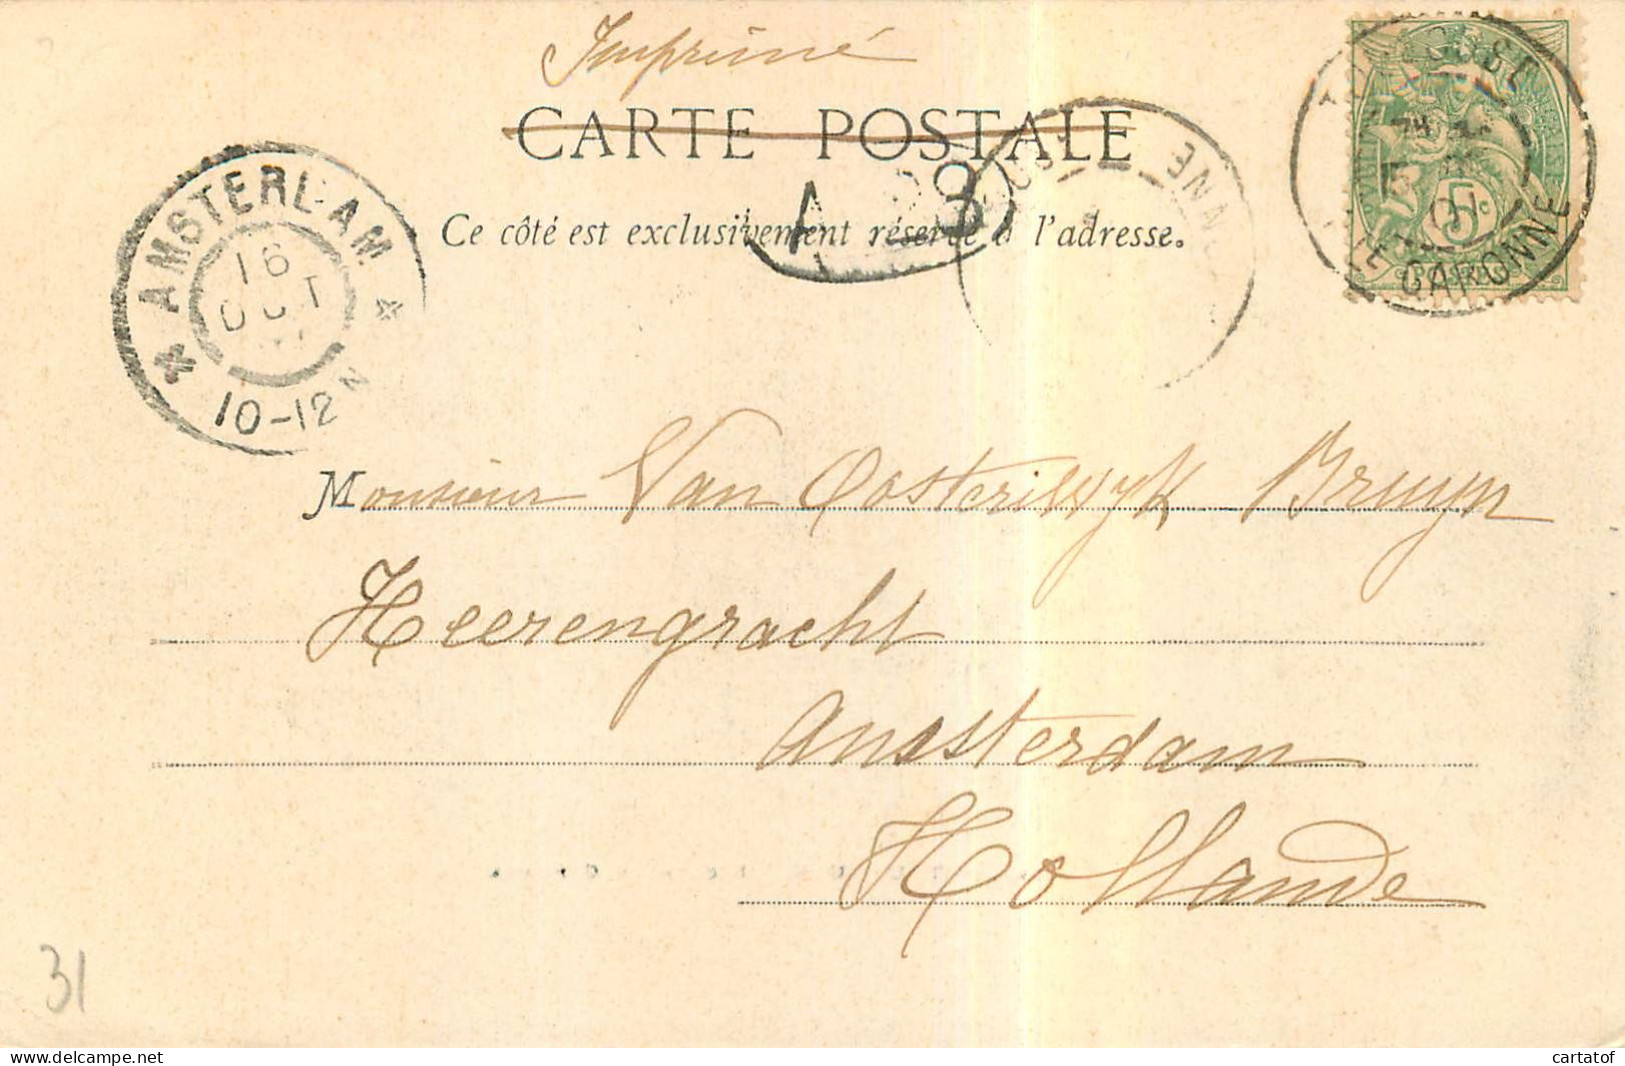 Imprimé
CARTE POSTALE
Ce côté est exclusivement réservé à l'adresse.
AMSTERDAM
16
OCT
10-12 N
A 28
TOULOUSE
HTE GARONNE
01
5c
Monsieur Van Oosterwyk Bruyn
Heerengracht
Amsterdam
Hollande
31
cartatof